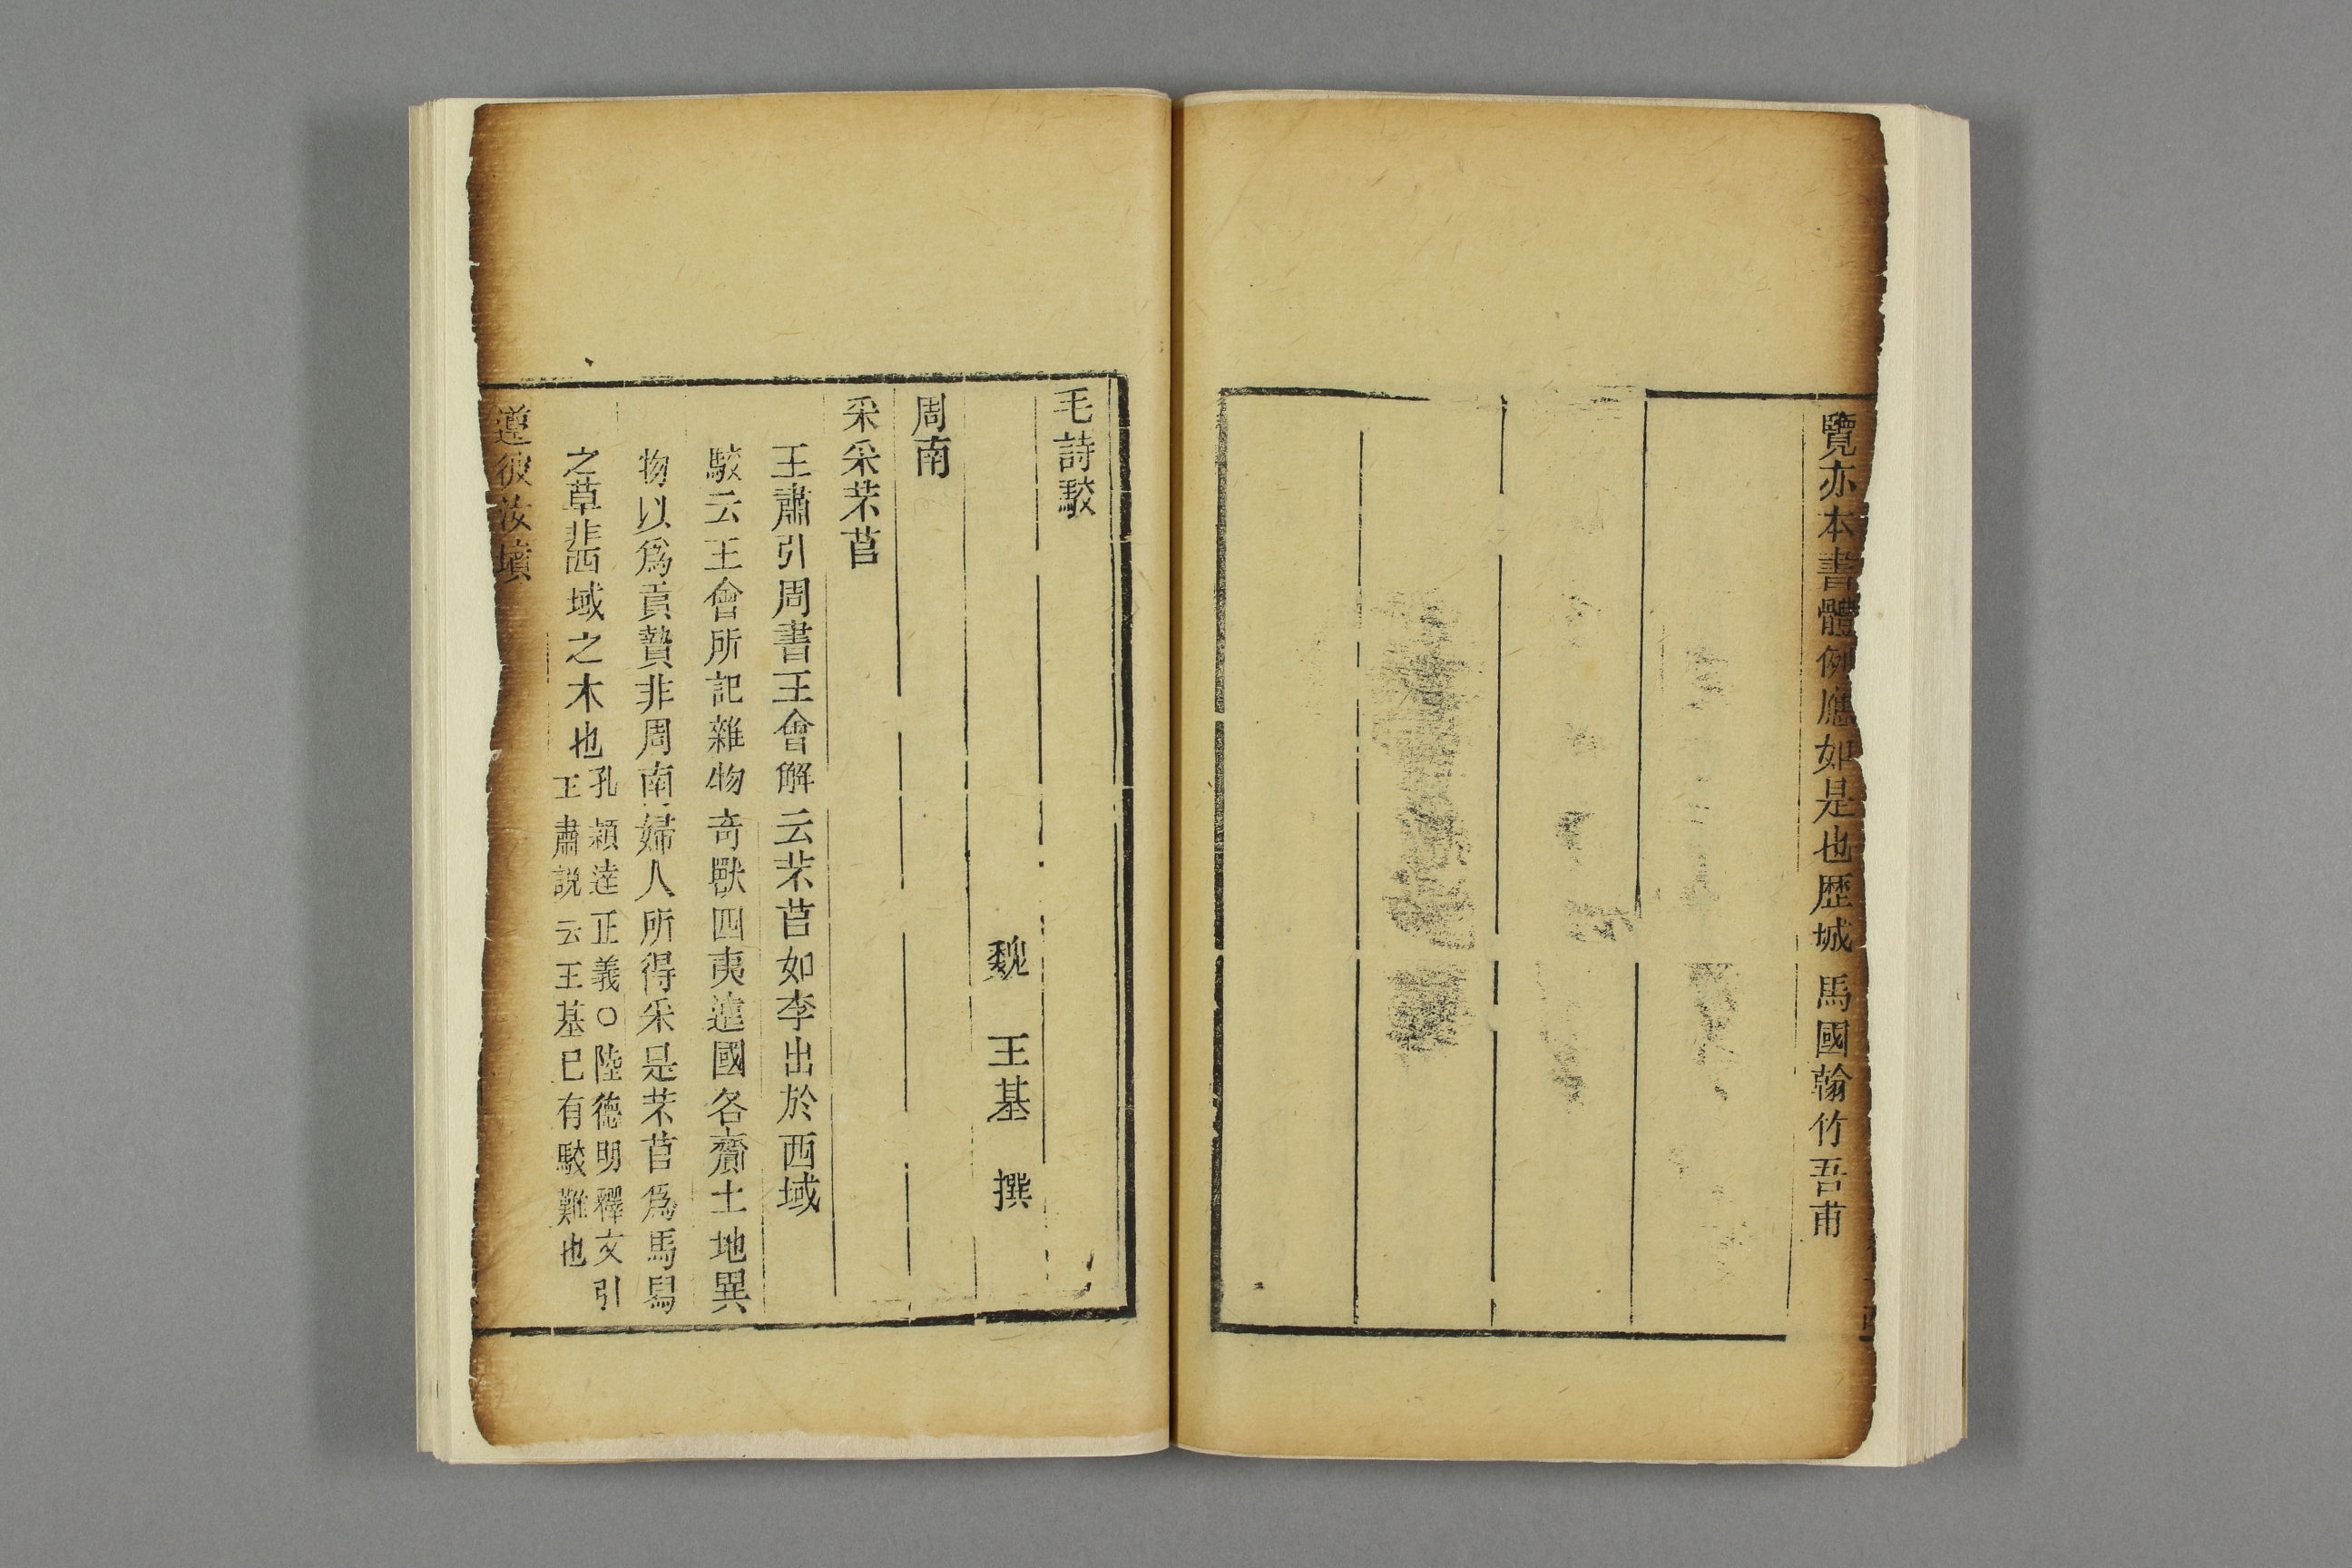 覽亦本書體例應如是也歴城馬國翰竹吾甫
毛詩駮
魏 王基 撰
周南
采采芣苢
王肅引周書王會解云芣苢如李出於西域
駮云王會所記雜物奇獸四夷遠國各齎土地異
物以爲貢贄非周南婦人所得采是芣苢爲馬舄
之草非西域之木也
孔穎達正義○陸德明釋文引
王肅説云王基已有駮難也
遵彼汝墳